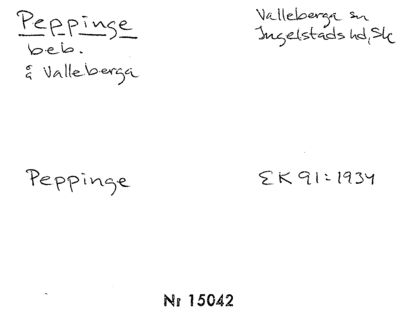 Peppinge
beb.
å Valleberga
Valleberga sn
Ingelstads hd, Sk
Peppinge
EK 91:1934
Nr 15042